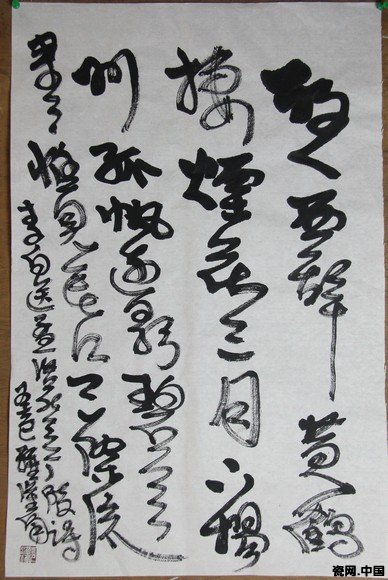 故人西辭黃鶴
樓煙花三月下揚
州孤帆遠影碧空
盡惟見長江天際流
李白送孟浩然之廣陵詩
瓷网.中国